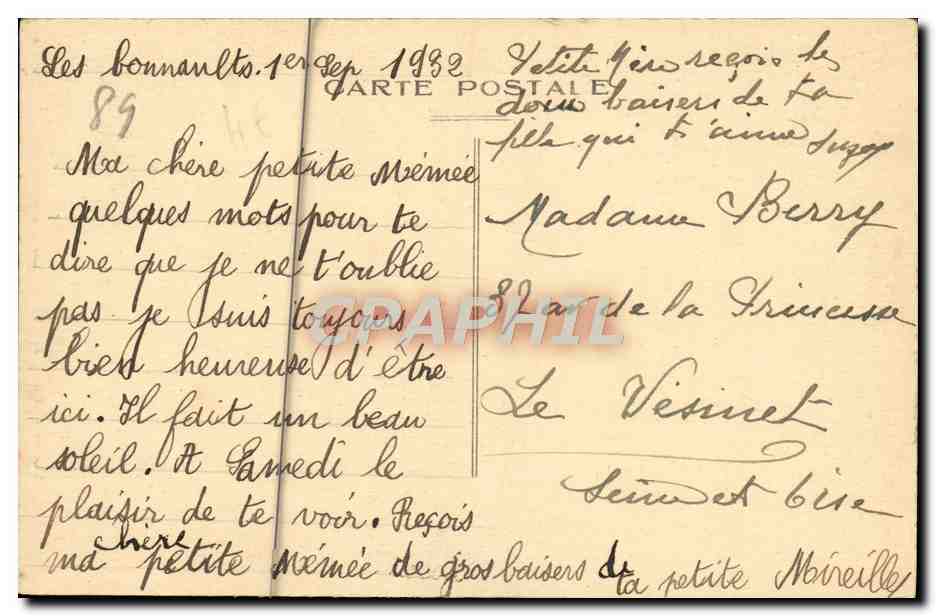 Les bonnaults. 1er Sep 1932
CARTE POSTALE
89
Ma chère petite Mémée
quelques mots pour te
dire que je ne t'oublie
pas je suis toujours
bien heureuse d'être
ici. Il fait un beau
soleil. A Samedi le
plaisir de te voir. Reçois
ma chère petite Mémée de gros baisers de
ta petite Mireille
Petite Mère reçois les
doux baisers de ta
fille qui t'aime Suzon
Madame Berry
82 de la Princesse
Le Vésinet
Seine et Oise
CPAPHIL